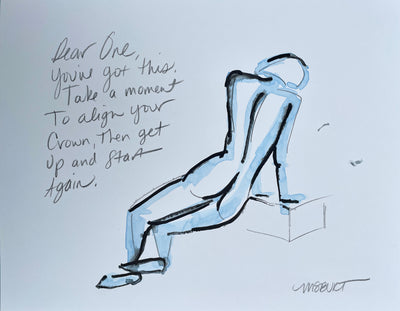 Dear One,
You've got this.
Take a moment
To align your
Crown, Then get
Up and Start
Again.